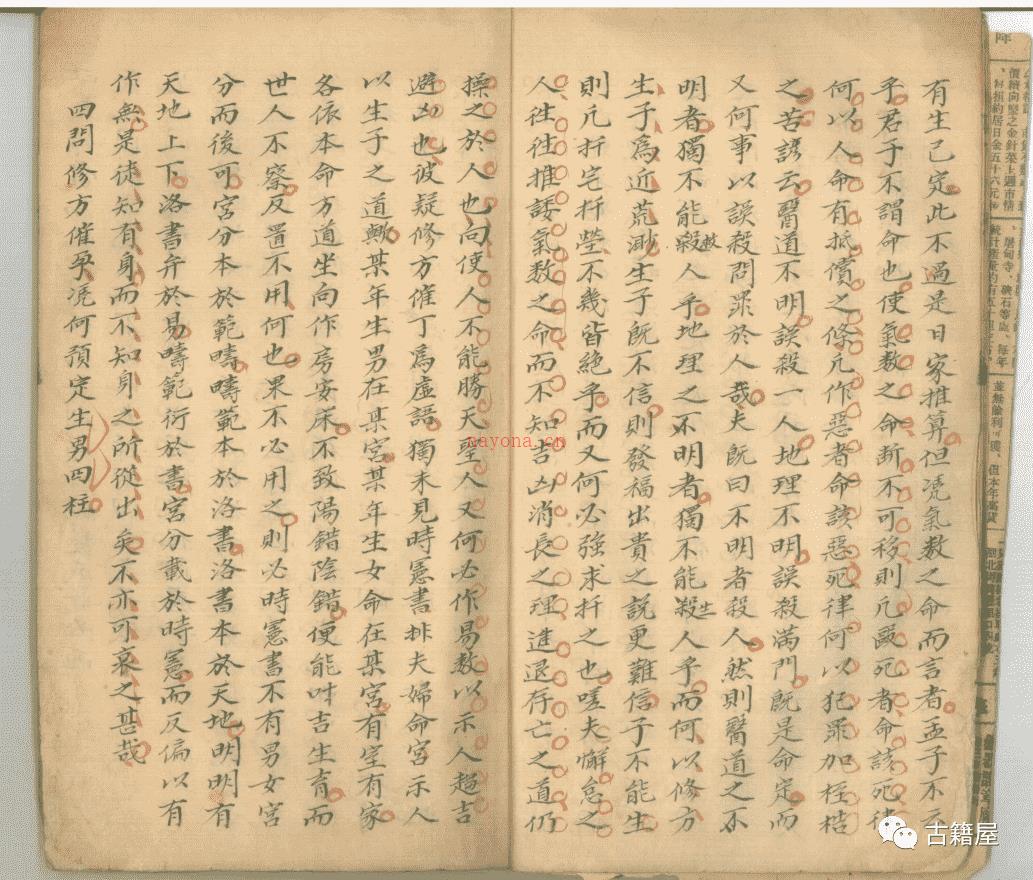 有生已定此不過是日家推算但凭氣数之命而言者孟子不云
乎君子不謂命也使氣数之命断不可移則凡毆死者命該死律
何以人命有抵償之條凡作惡者命該惡死律何以犯罪加桎梏
之苦諺云醫道不明誤殺一人地理不明誤殺滿門既是命定而
又何事以誤殺問罪於人哉夫既曰不明者殺人然則醫道之不
明者獨不能殺人乎地理之不明者獨不能殺人乎而何以修方
救
生
生子爲近荒渺生子既不信則發福出貴之説更難信子不能生
則凡扦宅扦塋不幾皆絶乎而又何必強求扦之也嗟夫懈怠之
人徃徃推諉氣数之命而不知吉凶消長之理進退存亡之道仍
操之於人也向使人不能勝天聖人又何必作易教以示人趨吉
避凶也彼疑修方催丁爲虛語獨未見時憲書排夫婦命宮示人
以生子之道歟某年生男在某宮某年生女命在某宮有室有家
各依本命方道坐向作房安床不致陽錯陰錯便能叶吉生育而
世人不察反置不用何也果不必用之則必時憲書不有男女宮
分而後可宮分本於範疇疇範本於洛書洛書本於天地明明有
天地上下洛書弁於易疇範衍於書宮分載於時憲而反偏以有
作無是徒知有身而不知身之所從出矣不亦可哀之甚哉
四問修方催孕凭何預定生男四柱
nayona.cn
古籍屋